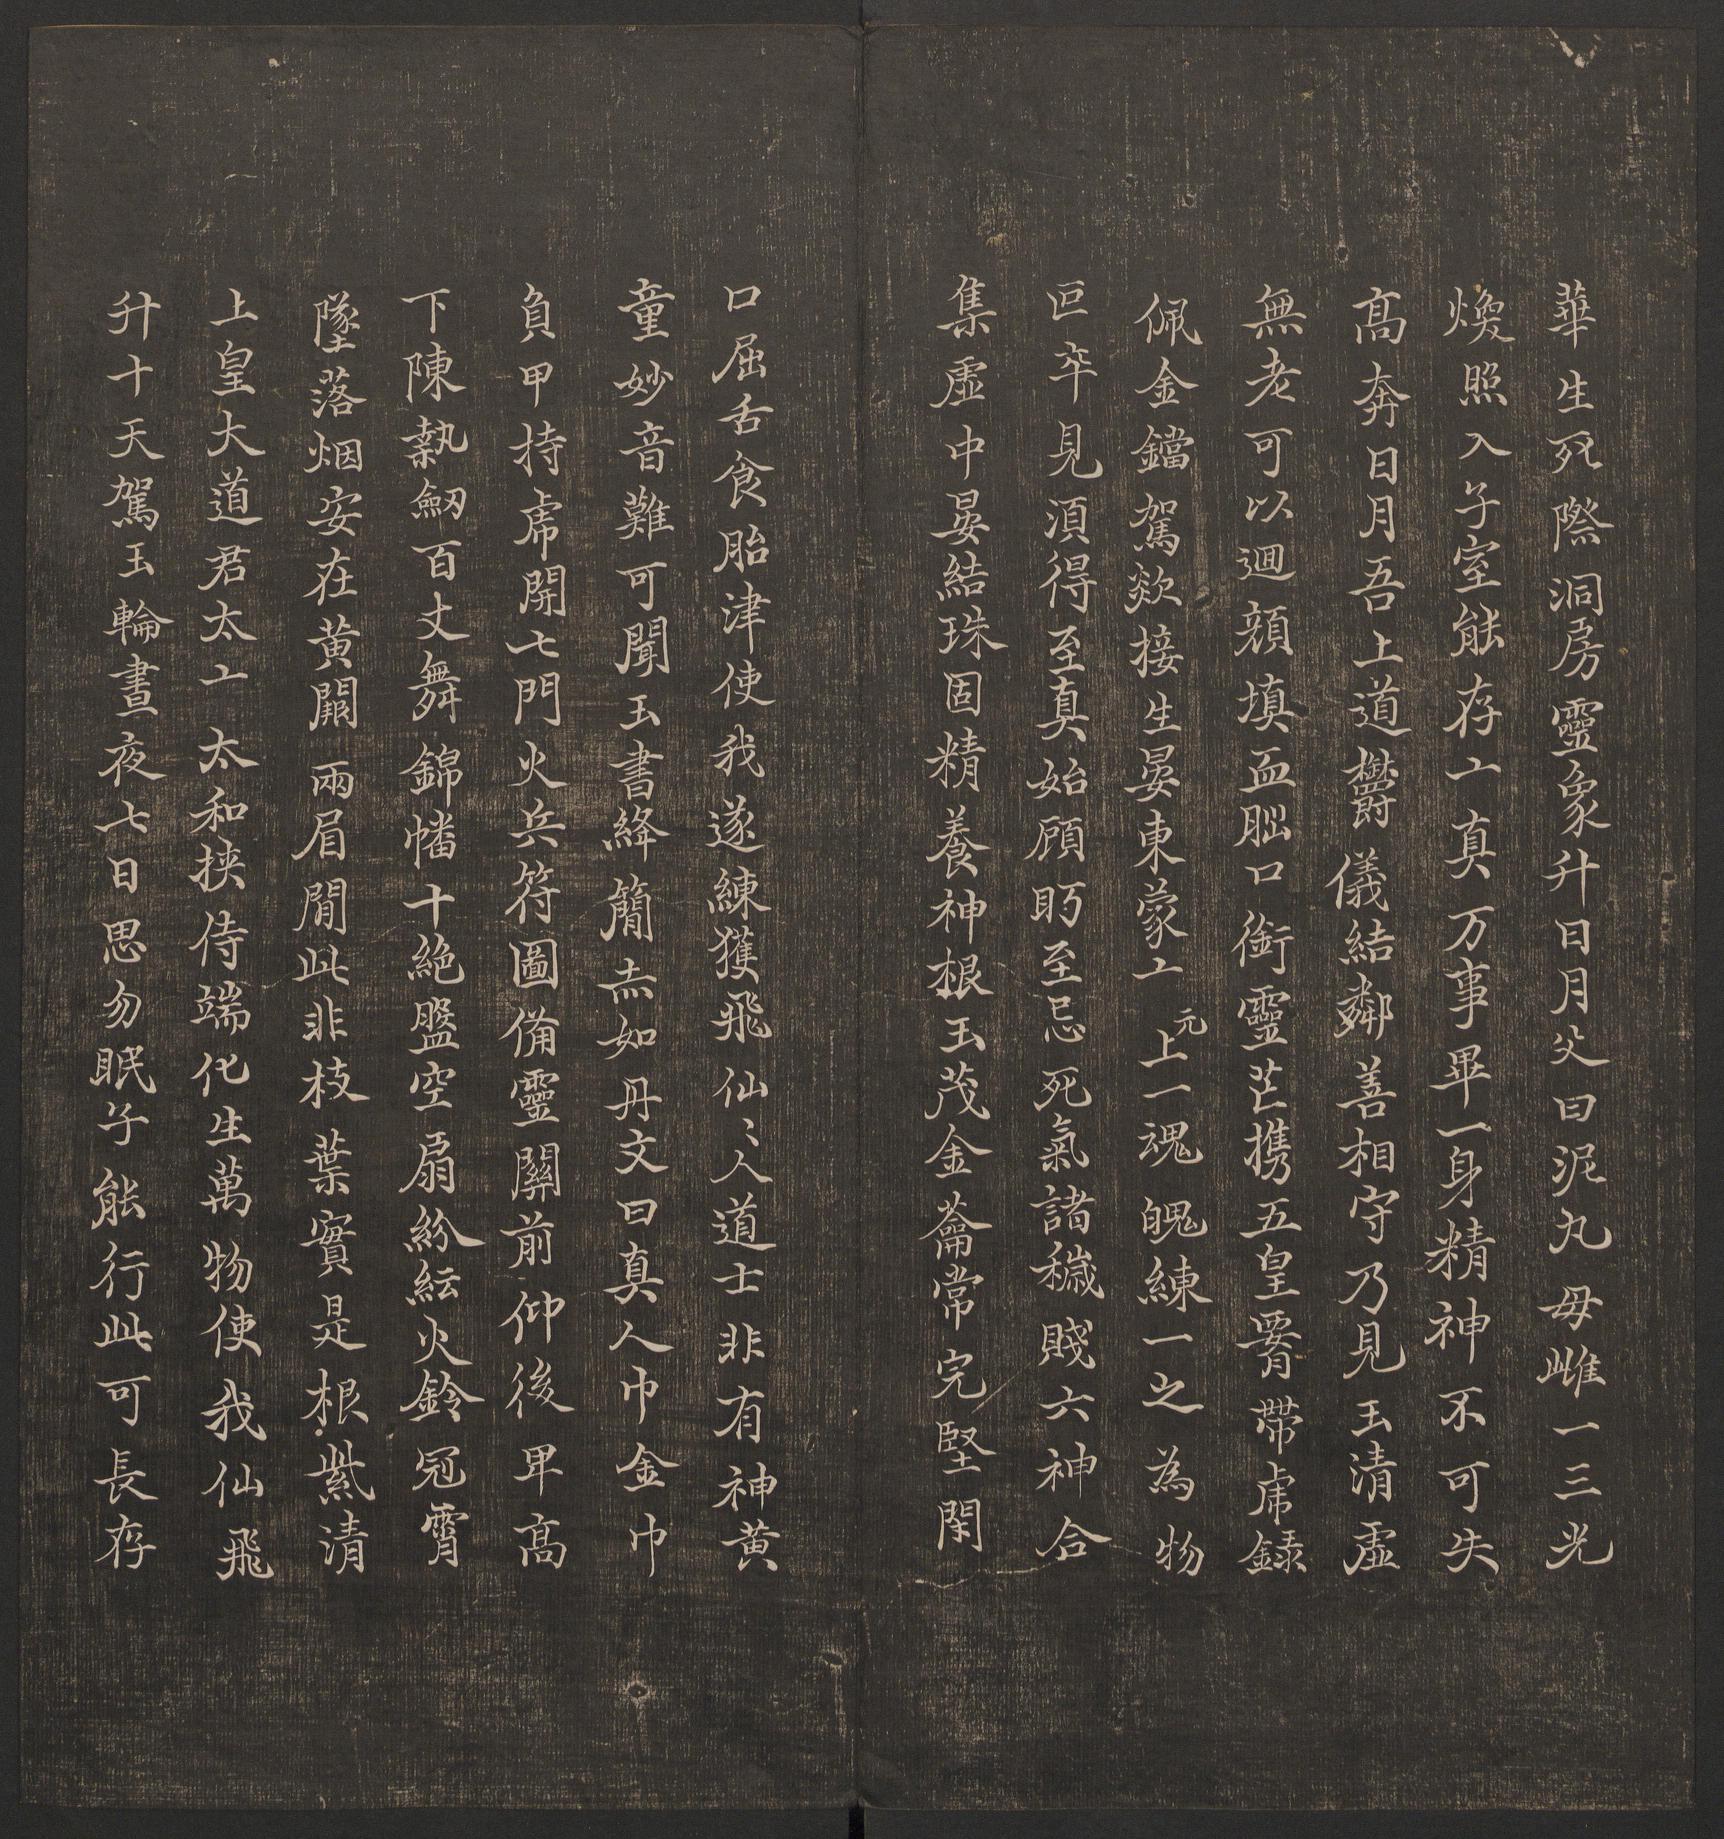 華生死際洞房靈象升日月父曰泥丸母雌一三光
煥照入子室能存亠真万事畢一身精神不可失
高奔日月吾上道欝儀結鄰善相守乃見玉清虛
無老可以迴顔填血腦口銜靈芒携五皇䍃帶虎錄
佩金鐺駕欻接生晏東蒙亠元上一魂魄練一之為物
叵卒見湏得至真始顧眄至忌死氣諸穢賤六神合
集虛中晏結珠固精養神根玉茂金籥常完堅閇
口屈舌食胎津使我遂練獲飛仙〻人道士非有神黄
童妙音難可聞玉書絳簡赤如丹文曰真人巾金巾
負甲持虎開七門火兵符圖備靈關前仰後卑高
下陳執劒百丈舞錦幡十絶盤空扇紛紜火鈴冠霄
墜落烟安在黄闕兩眉間此非枝葉實是根紫清
上皇大道君太亠太和挾侍端化生萬物使我仙飛
升十天駕玉輪晝夜七日思勿眠子能行此可長存